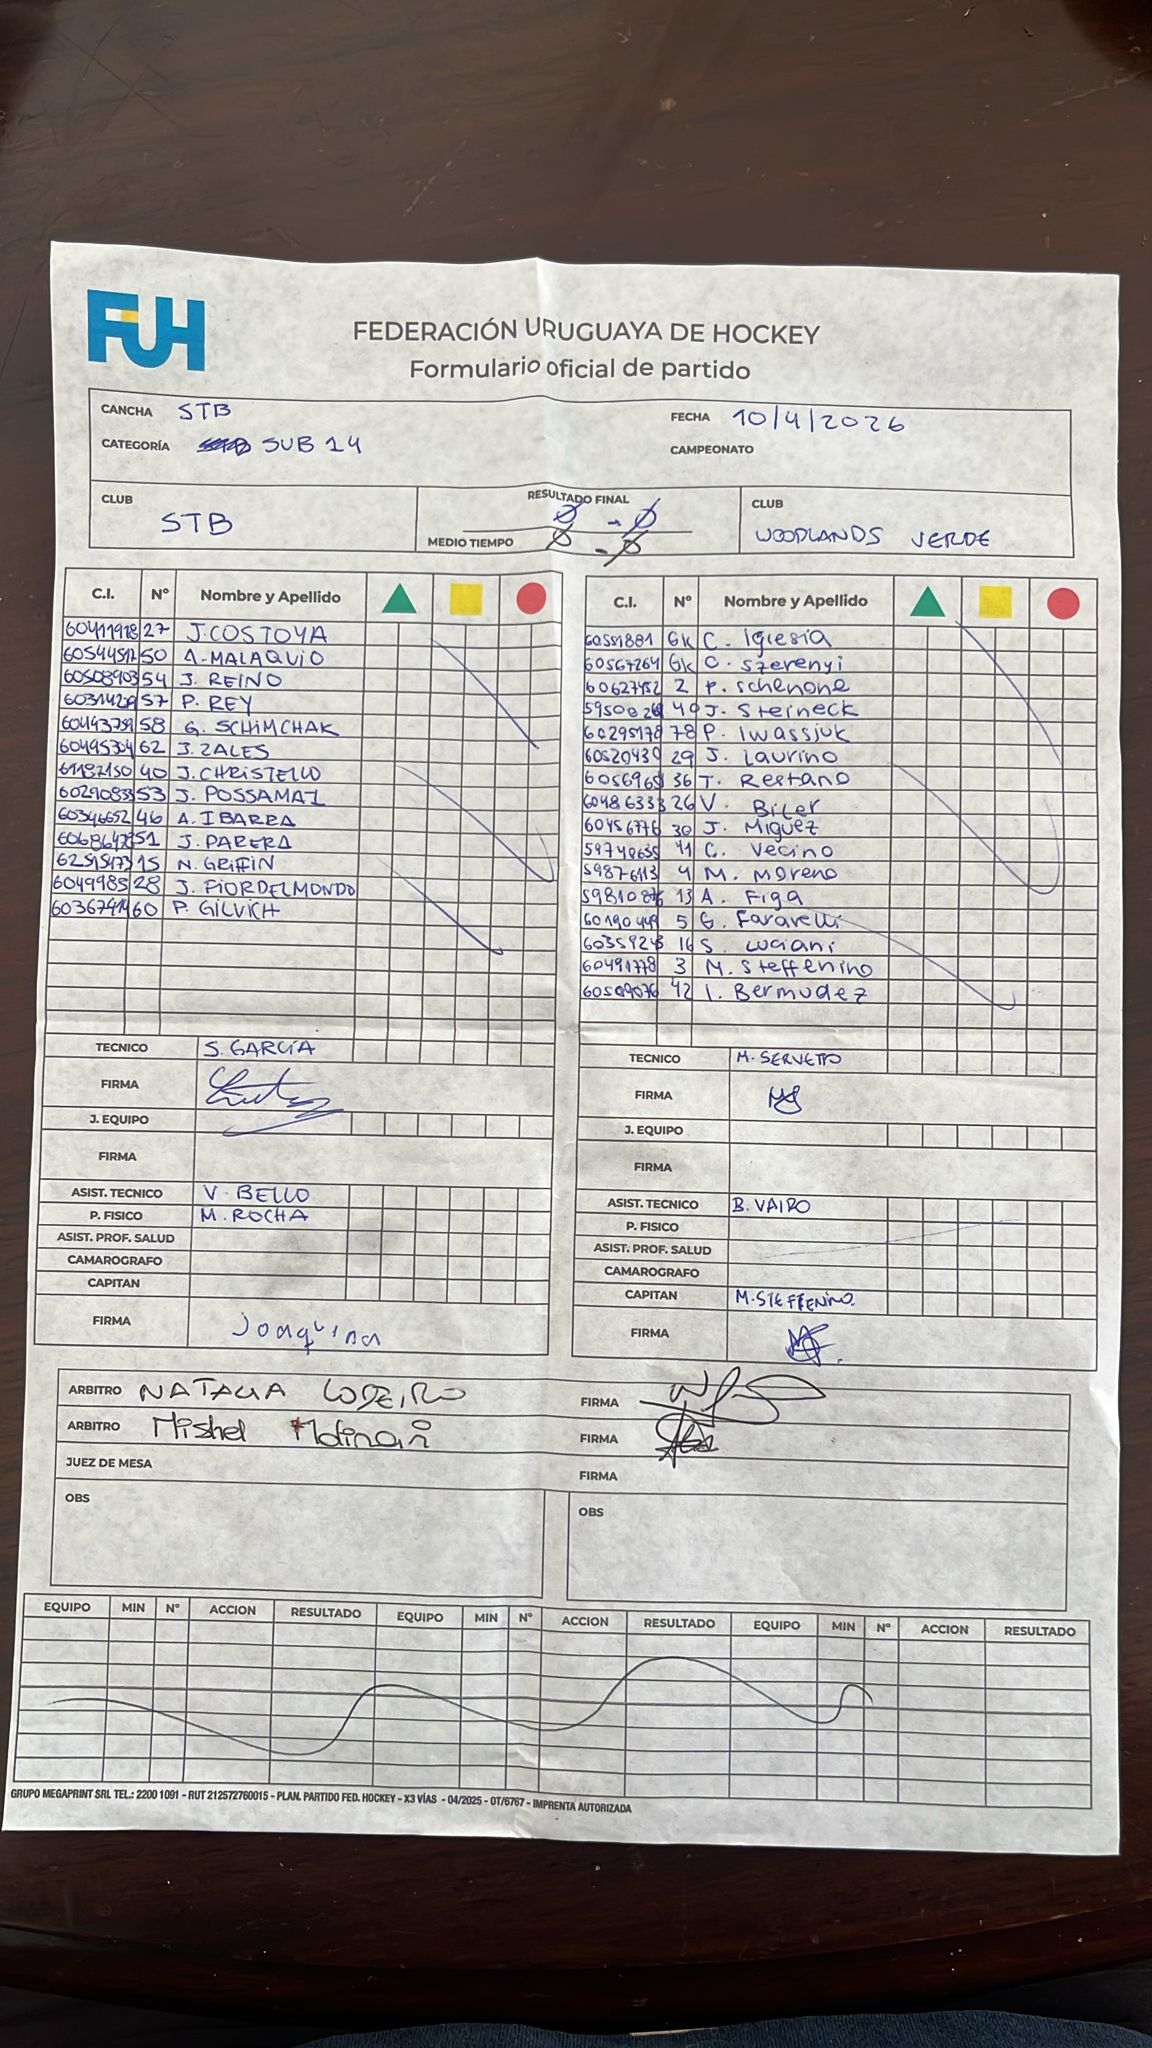 FUH
FEDERACIÓN URUGUAYA DE HOCKEY
Formulario oficial de partido
CANCHA STB FECHA 10/4/2026
CATEGORÍA SUB 14 CAMPEONATO
CLUB STB
RESULTADO FINAL Ø - Ø
MEDIO TIEMPO Ø - Ø
CLUB WOODLANDS VERDE
C.I. Nº Nombre y Apellido
27 J. COSTOYA
50 A. MALAQUIO
54 J. REINO
57 P. REY
58 G. SCHIMCHAK
62 J. ZALES
61182150 40 J. CHRISTELLO
53 J. POSSAMAI
60346652 46 A. IBARRA
51 J. PARERA
15 N. GRIFFIN
6049985 28 J. FIORDELMONDO
60 P. GILVICH
TECNICO S. GARCÍA
FIRMA
J. EQUIPO
FIRMA
ASIST. TECNICO V. BELLO
P. FISICO M. ROCHA
ASIST. PROF. SALUD
CAMAROGRAFO
CAPITAN
FIRMA Joaquina
C.I. Nº Nombre y Apellido
60551881 GK C. Iglesia
60567264 GK C. Szerenyi
60627452 2 P. Schenone
40 J. Steineck
60295178 78 P. Iwassjuk
29 J. Laurino
36 T. Restano
60486333 26 V. Biter
60456776 30 J. Miguez
59748655 41 C. Vecino
59876113 4 M. Moreno
13 A. Figa
60190449 5 G. Fararelli
16 S. Luciani
60491778 3 M. Steffenino
42 I. Bermudez
TECNICO M. SERVETTO
FIRMA
J. EQUIPO
FIRMA
ASIST. TECNICO B. VAIRO
P. FISICO
ASIST. PROF. SALUD
CAMAROGRAFO
CAPITAN M. STEFFENINO.
FIRMA
ARBITRO NATALIA LODEIRO FIRMA
ARBITRO Mishel Molinari FIRMA
JUEZ DE MESA FIRMA
OBS OBS
EQUIPO MIN Nº ACCION RESULTADO EQUIPO MIN Nº ACCION RESULTADO EQUIPO MIN Nº ACCION RESULTADO
GRUPO MEGAPRINT SRL TEL.: 2200 1091 - RUT 212572760015 - PLAN. PARTIDO FED. HOCKEY - X3 VÍAS - 04/2025 - OT/6767 - IMPRENTA AUTORIZADA